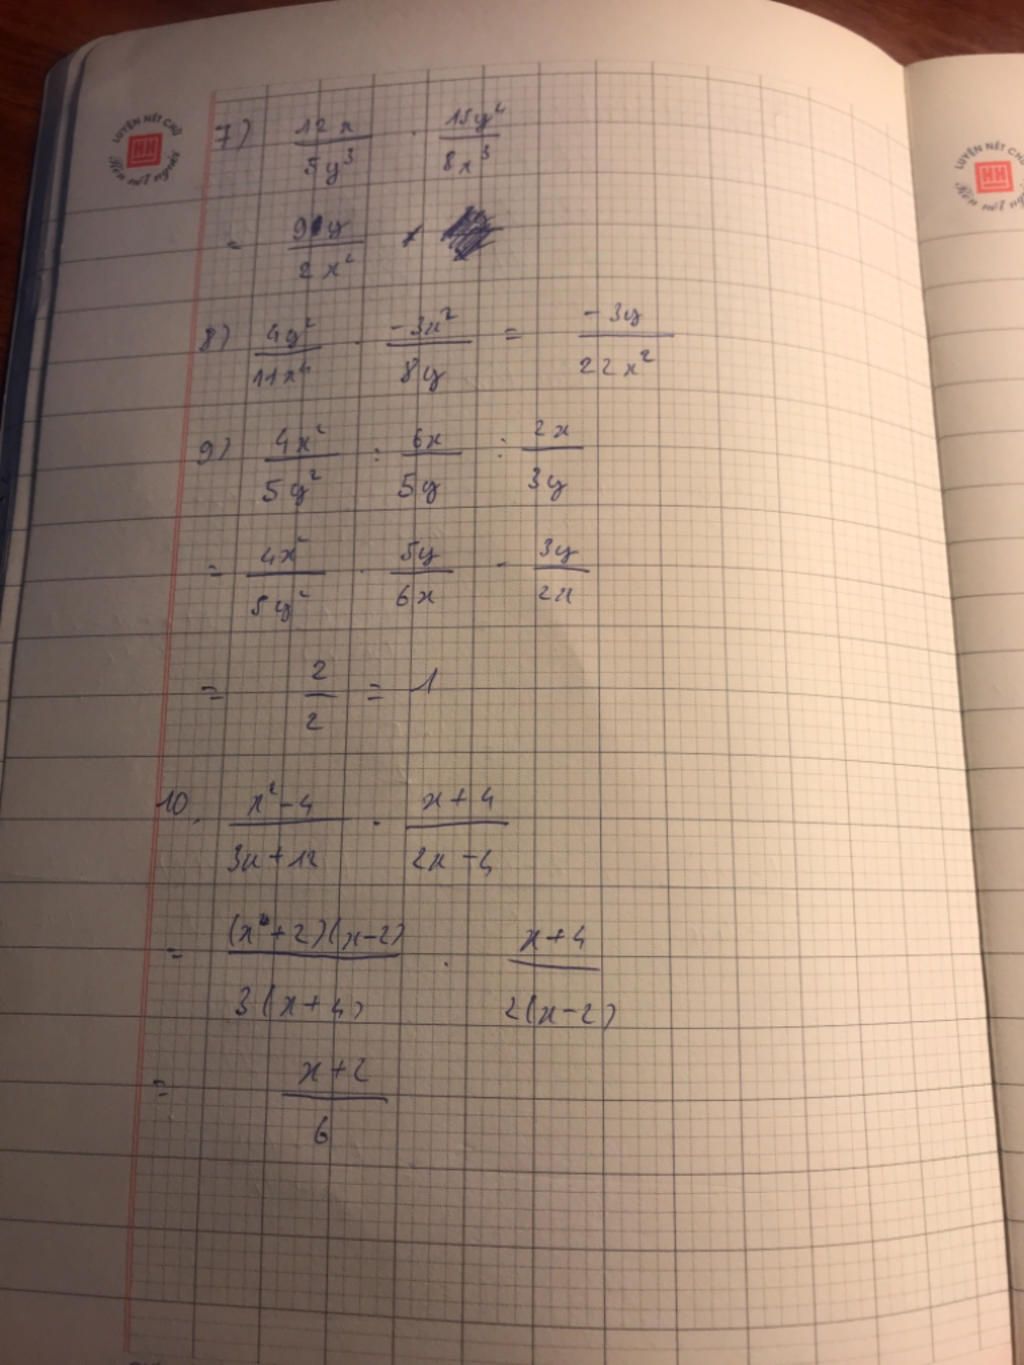 LUYỆN NÉT CHỮ
HH
Rèn nét người
7) 12x/5y³ · 15y⁴/8x³
= 9y/2x²
8) 4y²/11x⁴ · -3x²/8y = -3y/22x²
9) 4x²/5y² : 6x/5y : 2x/3y
= 4x²/5y² · 5y/6x · 3y/2x
= 2/2 = 1
10. x²-4/3x+12 · x+4/2x-4
= (x+2)(x-2)/3(x+4) · x+4/2(x-2)
= x+2/6
LUYỆN NÉT CHỮ
HH
Rèn nết